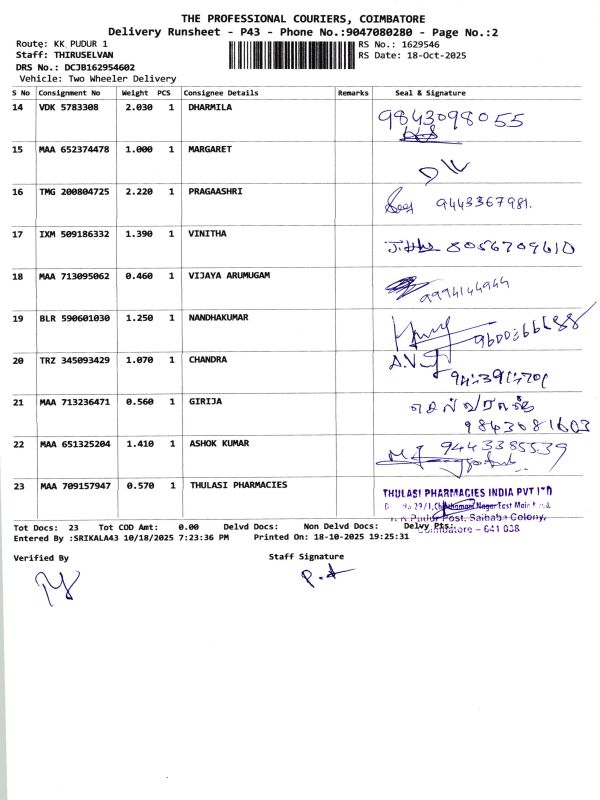 THE PROFESSIONAL COURIERS, COIMBATORE
Delivery Runsheet - P43 - Phone No.:9047080280 - Page No.:2
Route: KK PUDUR 1
RS No.: 1629546
Staff: THIRUSELVAN
RS Date: 18-Oct-2025
DRS No.: DCJB162954602
Vehicle: Two Wheeler Delivery
S No Consignment No Weight PCS Consignee Details Remarks Seal & Signature
14 VDK 5783308 2.030 1 DHARMILA 9843098055
15 MAA 652374478 1.000 1 MARGARET
16 TMG 200804725 2.220 1 PRAGAASHRI 9443367981.
17 IXM 509186332 1.390 1 VINITHA 8056709610
18 MAA 713095062 0.460 1 VIJAYA ARUMUGAM 9994144944
19 BLR 590601030 1.250 1 NANDHAKUMAR
20 TRZ 345093429 1.070 1 CHANDRA
21 MAA 713236471 0.560 1 GIRIJA
9843081603
22 MAA 651325204 1.410 1 ASHOK KUMAR 9443385539
23 MAA 709157947 0.570 1 THULASI PHARMACIES THULASI PHARMACIES INDIA PVT LTD
Nagar East Main Road,
K K Pudur Post, Saibaba Colony,
Coimbatore - 641 038
Tot Docs: 23 Tot COD Amt: 0.00 Delvd Docs: Non Delvd Docs: Delvy Pts:
Entered By :SRIKALA43 10/18/2025 7:23:36 PM Printed On: 18-10-2025 19:25:31
Verified By Staff Signature